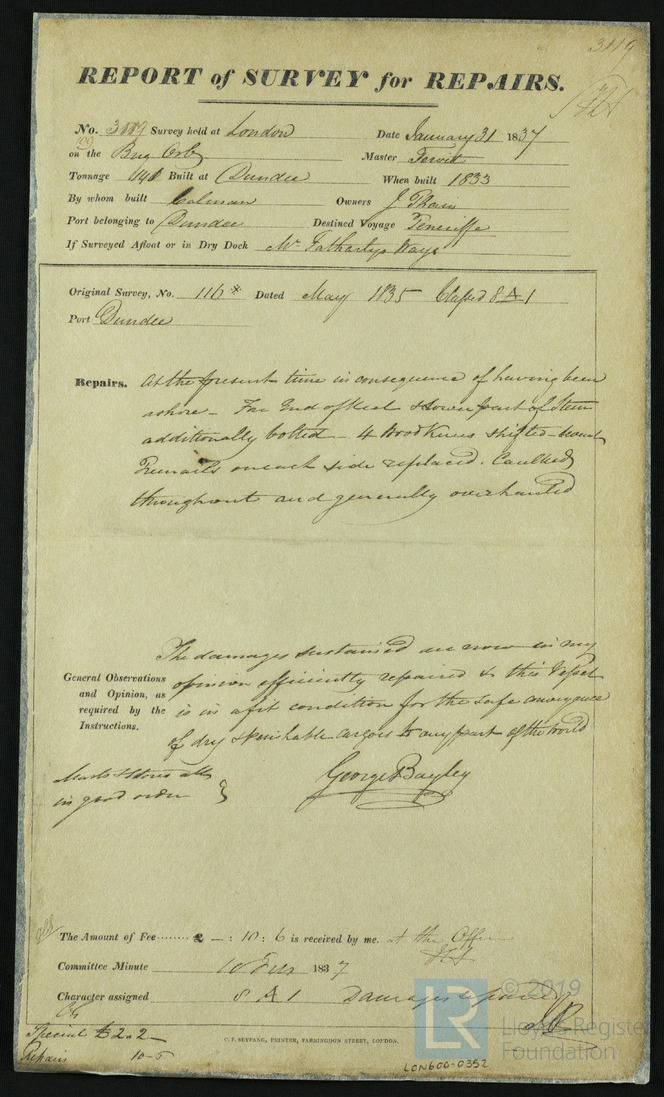 3119
REPORT of SURVEY for REPAIRS.
No. 3119 Survey held at London Date January 31 1837
on the Brig Orb Master
Tonnage 141 Built at Dundee When built 1833
By whom built Colman Owners J
Port belonging to Dundee Destined Voyage Teneriffe
If Surveyed Afloat or in Dry Dock Mr Ways
Original Survey, No. 116* Dated May 1835 Classed 8 A 1
Port Dundee
Repairs. At the present time in consequence of having been
ashore – Fore End of Keel & Lower part of Stem
additionally bolted – 4 Wood Knees shifted –
Treenails on each side replaced. Caulked
throughout and generally overhauled
The damages sustained are now in my
General Observations and Opinion, as required by the Instructions.
opinion efficiently repaired & this Vessel
is in a fit condition for the safe conveyance
of dry & perishable cargoes to any part of the world
Masts & Stores all
in good order
George Bayley
The Amount of Fee ........ £ – : 10 : 6 is received by me. at the Office
Committee Minute 10 Feb 1837
Character assigned 8 A 1 Damages repaired
Special £2.2
Repairs 10-5
C. F. SEYFANG, PRINTER, FARRINGDON STREET, LONDON.
LON600-0352
LR
© 2019
Lloyd's Register
Foundation